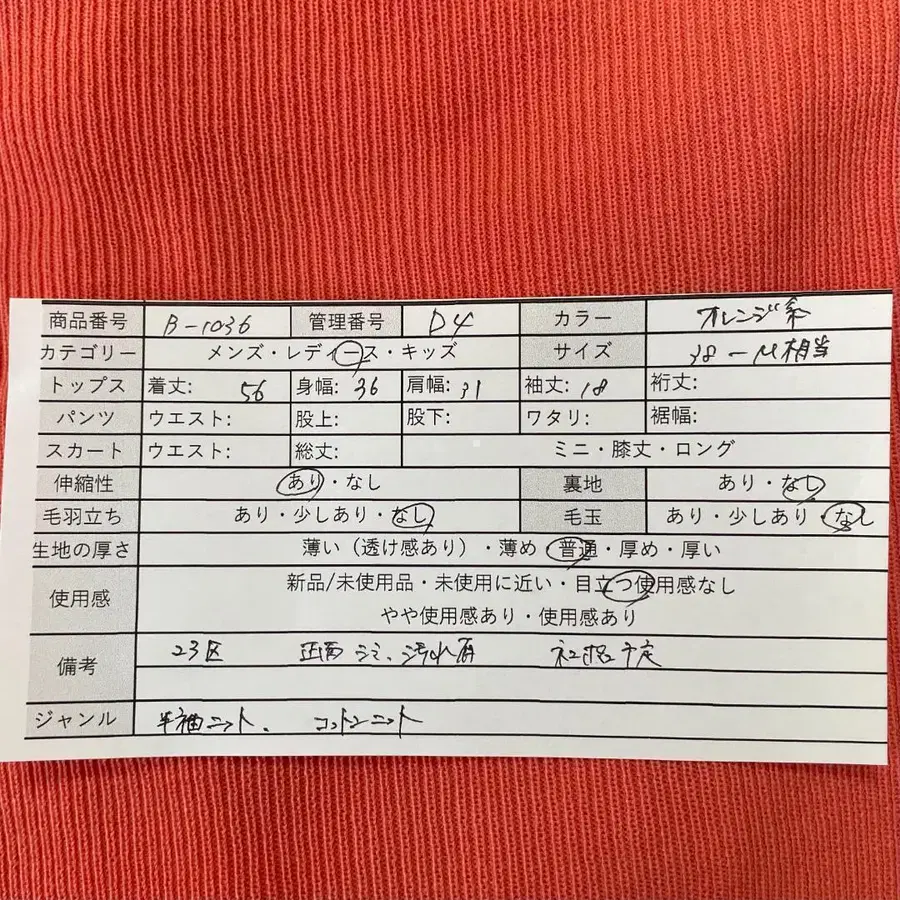 商品番号 B-1036 管理番号 D4 カラー オレンジ系
カテゴリー メンズ・レディース・キッズ サイズ 38-M相当
トップス 着丈: 56 身幅: 36 肩幅: 31 袖丈: 18 裄丈:
パンツ ウエスト: 股上: 股下: ワタリ: 裾幅:
スカート ウエスト: 総丈: ミニ・膝丈・ロング
伸縮性 あり・なし 裏地 あり・なし
毛羽立ち あり・少しあり・なし 毛玉 あり・少しあり・なし
生地の厚さ 薄い（透け感あり）・薄め・普通・厚め・厚い
使用感 新品/未使用品・未使用に近い・目立つ使用感なし
やや使用感あり・使用感あり
備考 23区 正面 シミ、汚れ有
ジャンル 半袖ニット、 コットンニット